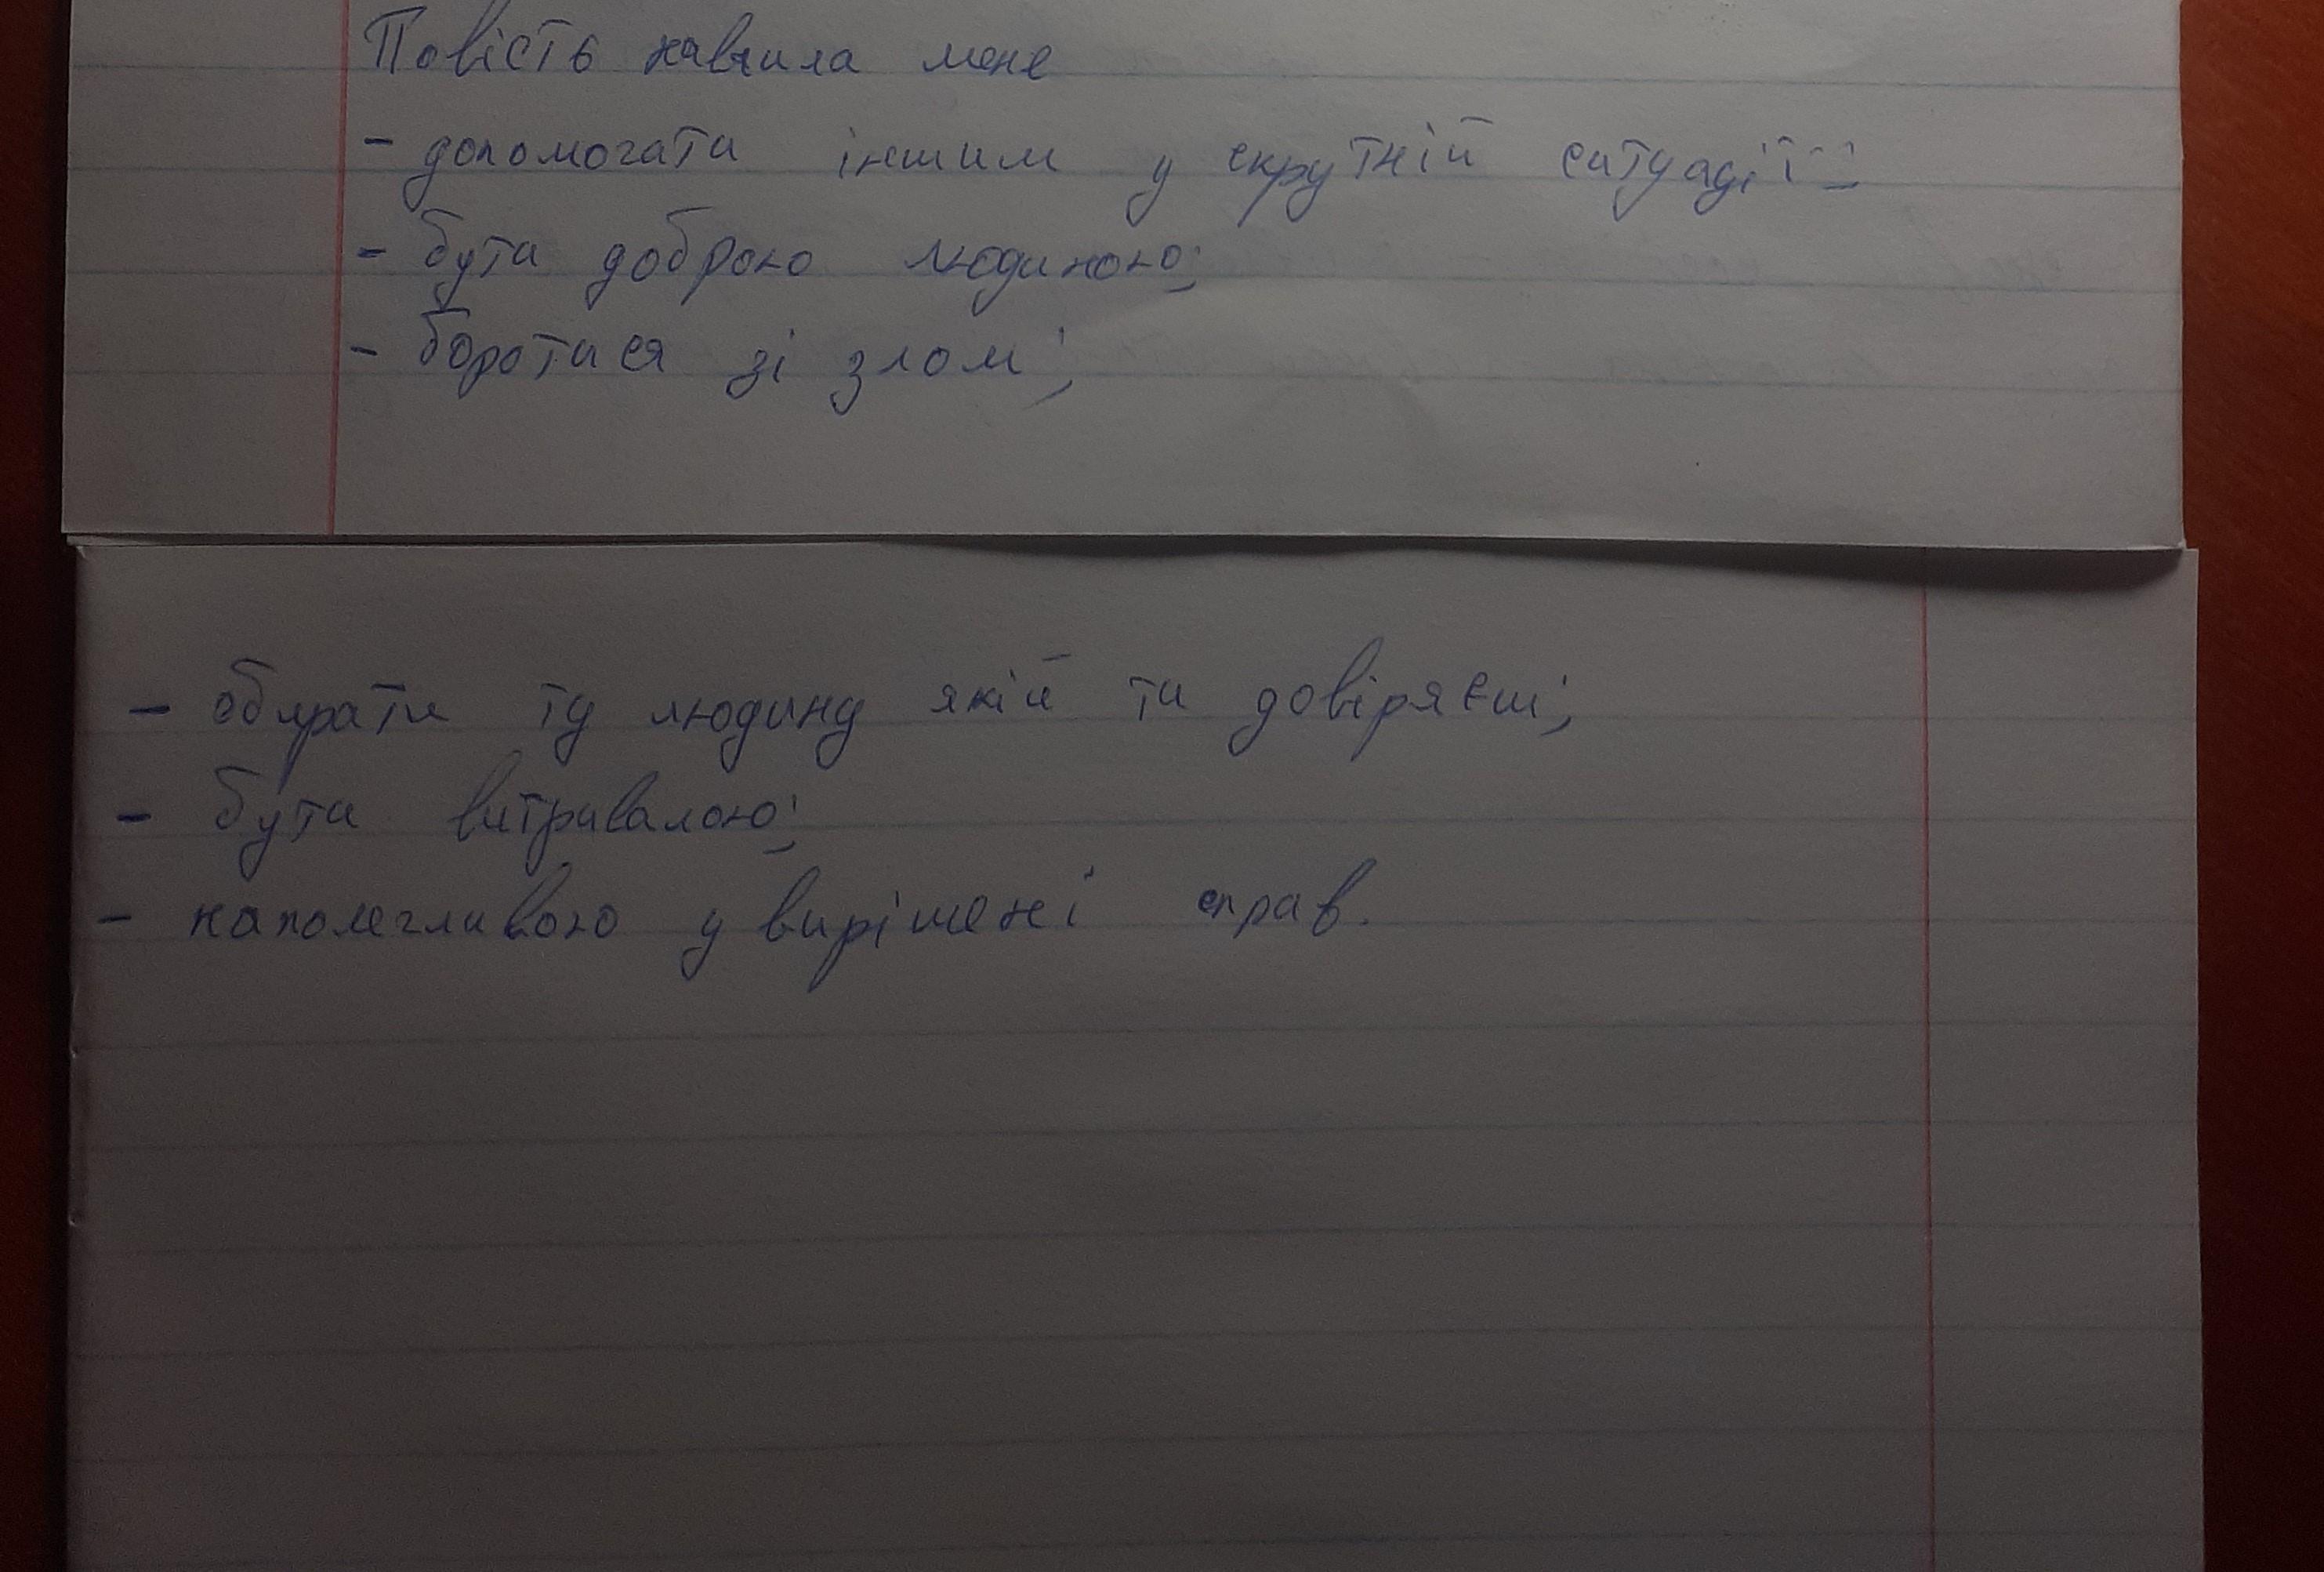 Повість навчила мене
- допомогати іншим у скрутній ситуації;
- бути доброю людиною;
- боротися зі злом;
- обирати ту людину якій ти довіряєш;
- бути витривалою;
- наполегливою у вирішені справ.